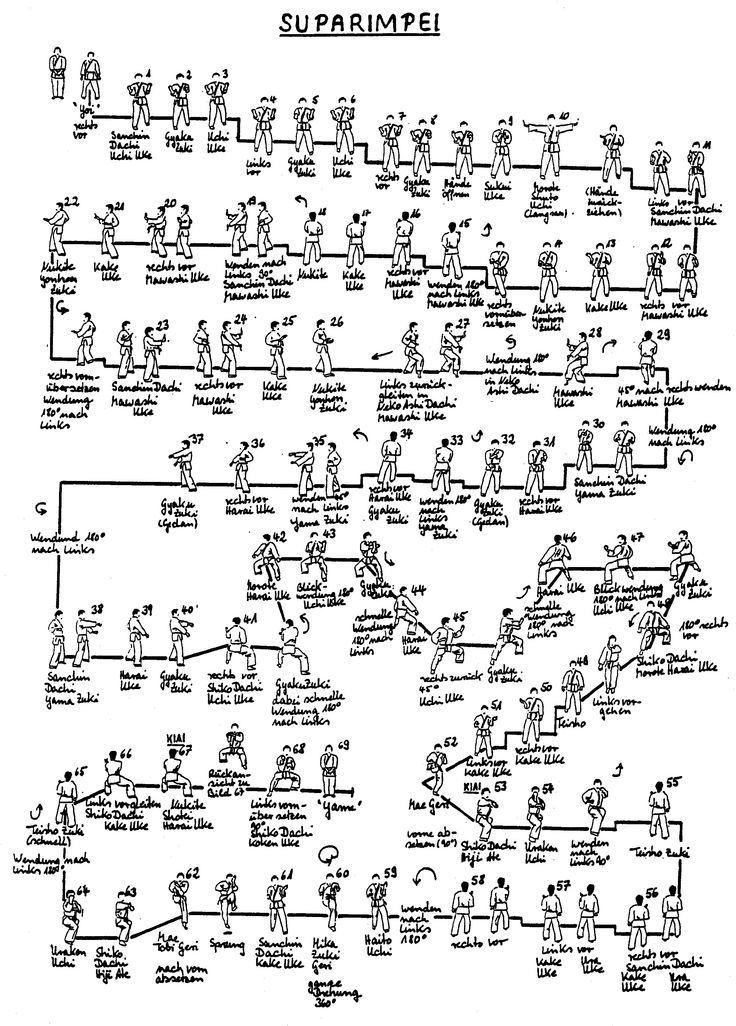 SUPARIMPEI
"Yoi"
rechts
vor
1
Sanchin
Dachi
Uchi Uke
2
Gyaku
Zuki
3
Uchi
Uke
4
Links
vor
5
Gyaku
Zuki
6
Uchi
Uke
7
rechts
vor
8
Gyaku
Zuki
Hände
öffnen
9
Sukui
Uke
10
Morote
Shuto
Uchi
(langsam)
(Hände
zurück-
ziehen)
11
Links vor
Sanchin Dachi
Mawashi Uke
22
Nukite
Yonhon
Zuki
21
Kake
Uke
20
rechts vor
Mawashi Uke
19
wenden nach
links 90°
Sanchin Dachi
Mawashi Uke
18
Nukite
17
Kake
Uke
16
rechts vor
Mawashi Uke
15
wenden 180°
nach links
Mawashi Uke
rechts
vornüber
setzen
14
Nukite
Yonhon
Zuki
13
Kake Uke
12
rechts vor
Mawashi Uke
rechts vorn-
übersetzen
Wendung
180° nach
links
23
Sanchin Dachi
Mawashi
Uke
24
rechts vor
Mawashi
Uke
25
Kake
Uke
26
Nukite
Yonhon
Zuki
27
Links zurück-
gleiten in
Neko Ashi Dachi
Mawashi
Uke
Wendung 180°
nach links
in Neko
Ashi Dachi
28
Mawashi
Uke
29
45° nach rechts wenden
Mawashi Uke
37
Gyaku
Zuki
(Gedan)
36
rechts vor
Harai Uke
35
wenden 45°
nach links
Yama Zuki
34
rechts vor
Harai Uke
Gyaku
Zuki
33
wenden 180°
nach
links
Yama
Zuki
32
Gyaku
Zuki
(Gedan)
31
rechts vor
Harai Uke
30
Sanchin Dachi
Yama Zuki
Wendung 180°
nach links
Wendund 180°
nach links
42
Morote
Harai Uke
43
Blick-
wendung 180°
Uchi Uke
Gyaku
Zuki
schnelle
Wendung
180° nach
links
44
Harai
Uke
45
rechts zurück
45°
Uchi Uke
Gyaku
Zuki
schnelle
Wendung
180° nach
links
46
Harai Uke
47
Blickwendung
180° nach links
Uchi Uke
Gyaku
Zuki
Sanchin
Dachi
Yama Zuki
38
39
Harai
Uke
40
Gyaku
Zuki
41
rechts vor
Shiko Dachi
Uchi Uke
Gyaku Zuki
dabei schnelle
Wendung 180°
nach links
48
180° rechts
vor
Shiko Dachi
Morote Harai Uke
Links vor-
gehen
49
Teisho
50
rechts vor
Kake Uke
51
Links vor
Kake Uke
52
Mae Geri
vorne ab-
setzen (90°)
KIAI
53
Shiko Dachi
Hiji Ate
54
Uraken
Uchi
wenden
nach
links 90°
55
Teisho Zuki
65
Teisho Zuki
(schnell)
Wendung nach
links 180°
66
Links vorgleiten
Shiko Dachi
Kake Uke
KIAI
67
Nukite
Shoki
Harai Uke
Rückan-
sicht zu
Bild 67
68
Links vorn-
über setzen
90°
Shiko Dachi
Koken Uke
69
"Yame"
64
Uraken
Uchi
63
Shiko
Dachi
Hiji Ate
62
Mae
Tobi Geri
nach vorn
absetzen
Sprung
61
Sanchin
Dachi
Kake Uke
60
Mika
Zuki
Geri
ganze
Drehung
360°
59
Haito
Uchi
wenden
nach
links
180°
58
rechts vor
57
Links vor
Kake
Uke
Ura
Uke
56
rechts vor
Sanchin Dachi
Kake
Uke
Ura
Uke